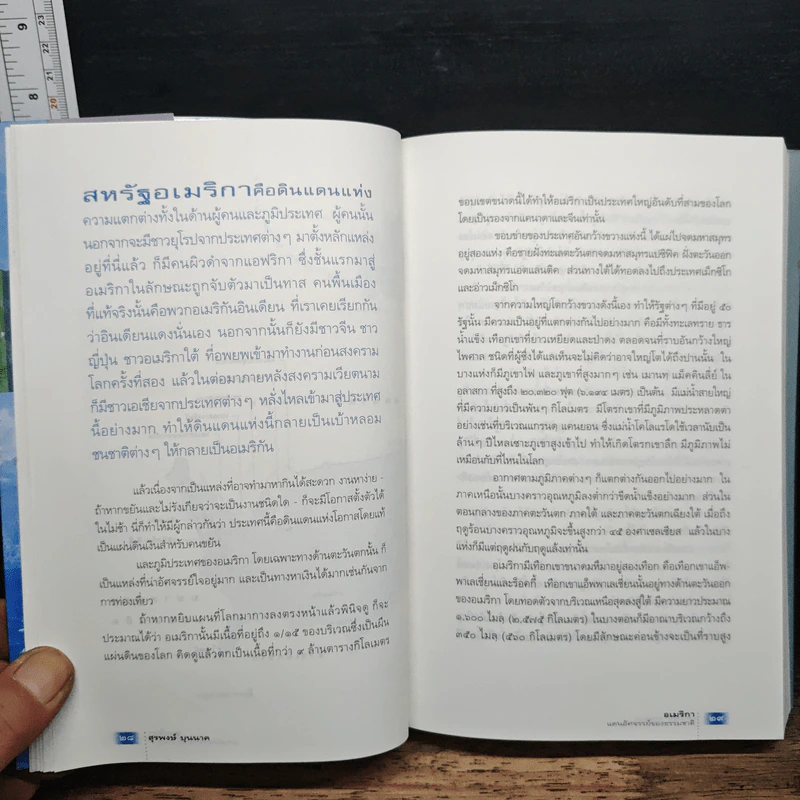 9
8
23
22
21
20
สหรัฐอเมริกาคือดินแดนแห่ง
ความแตกต่างทั้งในด้านผู้คนและภูมิประเทศ ผู้คนนั้น
นอกจากจะมีชาวยุโรปจากประเทศต่างๆ มาตั้งหลักแหล่ง
อยู่ที่นี่แล้ว ก็มีคนผิวดำจากแอฟริกา ซึ่งชั้นแรกมาสู่
อเมริกาในลักษณะถูกจับตัวมาเป็นทาส คนพื้นเมือง
ที่แท้จริงนั้นคือพวกอเมริกันอินเดียน ที่เราเคยเรียกกัน
ว่าอินเดียนแดงนั่นเอง นอกจากนั้นก็ยังมีชาวจีน ชาว
ญี่ปุ่น ชาวอเมริกาใต้ ที่อพยพเข้ามาทำงานก่อนสงคราม
โลกครั้งที่สอง แล้วในต่อมาภายหลังสงครามเวียตนาม
ก็มีชาวเอเซียจากประเทศต่างๆ หลั่งไหลเข้ามาสู่ประเทศ
นี้อย่างมาก ทำให้ดินแดนแห่งนี้กลายเป็นเบ้าหลอม
ชนชาติต่างๆ ให้กลายเป็นอเมริกัน
แล้วเนื่องจากเป็นแหล่งที่อาจทำมาหากินได้สะดวก งานหาง่าย -
ถ้าหากขยันและไม่รังเกียจว่าจะเป็นงานชนิดใด - ก็จะมีโอกาสตั้งตัวได้
ในไม่ช้า นี่ก็ทำให้มีผู้กล่าวกันว่า ประเทศนี้คือดินแดนแห่งโอกาสโดยแท้
เป็นแผ่นดินเงินสำหรับคนขยัน
และภูมิประเทศของอเมริกา โดยเฉพาะทางด้านตะวันตกนั้น ก็
เป็นแหล่งที่น่าอัศจรรย์ใจอยู่มาก และเป็นทางหาเงินได้มากเช่นกันจาก
การท่องเที่ยว
ถ้าหากหยิบแผนที่โลกมากางลงตรงหน้าแล้วพินิจดู ก็จะ
ประมาณได้ว่า อเมริกานั้นมีเนื้อที่อยู่ถึง ๑/๑๕ ของบริเวณซึ่งเป็นผืน
แผ่นดินของโลก คิดดูแล้วตกเป็นเนื้อที่กว่า ๙ ล้านตารางกิโลเมตร
๒๘ สุรพงษ์ บุนนาค
ขอบเขตขนาดนี้ได้ทำให้อเมริกาเป็นประเทศใหญ่อันดับที่สามของโลก
โดยเป็นรองจากแคนาดาและจีนเท่านั้น
ขอบข่ายของประเทศอันกว้างขวางแห่งนี้ ได้แผ่ไปจดมหาสมุทร
อยู่สองแห่ง คือชายฝั่งทะเลตะวันตกจดมหาสมุทรแปซิฟิค ฝั่งตะวันออก
จดมหาสมุทรแอตแลนติค ส่วนทางใต้ได้ทอดลงไปถึงประเทศเม็กซิโก
และอ่าวเม็กซิโก
จากความใหญ่โตกว้างขวางดังนี้เอง ทำให้รัฐต่างๆ ที่มีอยู่ ๕๐
รัฐนั้น มีความเป็นอยู่ที่แตกต่างกันไปอย่างมาก คือมีทั้งทะเลทราย ธาร
น้ำแข็ง เทือกเขาที่ยาวเหยียดและป่าดง ตลอดจนที่ราบอันกว้างใหญ่
ไพศาล ชนิดที่ผู้ซึ่งได้แลเห็นจะไม่คิดว่าอาจใหญ่โตได้ถึงปานนั้น ใน
บางแห่งก็มีภูเขาไฟ และภูเขาที่สูงมากๆ เช่น เมานทฺ แม็คคินลี่ย์ ใน
อลาสกา ที่สูงถึง ๒๐,๓๒๐ ฟุต (๖,๑๙๔ เมตร) เป็นต้น มีแม่น้ำสายใหญ่
ที่มีความยาวเป็นพันๆ กิโลเมตร มีโตรกเขาที่มีภูมิภาพประหลาดตา
อย่างเช่นที่บริเวณแกรนดฺ แคนยอน ซึ่งแม่น้ำโคโลแรโดใช้เวลานับเป็น
ล้านๆ ปีไหลเซาะภูเขาสูงเข้าไป ทำให้เกิดโตรกเขาลึก มีภูมิภาพไม่
เหมือนกับที่ไหนในโลก
อากาศตามภูมิภาคต่างๆ ก็แตกต่างกันออกไปอย่างมาก ใน
ภาคเหนือนั้นบางคราวอุณหภูมิลงต่ำกว่าขีดน้ำแข็งอย่างมาก ส่วนใน
ตอนกลางของภาคตะวันตก ภาคใต้ และภาคตะวันตกเฉียงใต้ เมื่อถึง
ฤดูร้อนบางคราวอุณหภูมิจะขึ้นสูงกว่า ๔๕ องศาเซลเซียส แล้วในบาง
แห่งก็มีแต่ฤดูฝนกับฤดูแล้งเท่านั้น
อเมริกามีเทือกเขาขนาดมหึมาอยู่สองเทือก คือเทือกเขาแอ็พ-
พาเลเชียนและร็อคกี้ เทือกเขาแอ็พพาเลเชียนนั้นอยู่ทางด้านตะวันออก
ของอเมริกา โดยทอดตัวจากบริเวณเหนือสุดลงสู่ใต้ มีความยาวประมาณ
๑,๖๐๐ ไมลฺ (๒,๕๗๕ กิโลเมตร) ในบางตอนก็มีอาณาบริเวณกว้างถึง
๓๕๐ ไมลฺ (๕๖๐ กิโลเมตร) โดยมีลักษณะค่อนข้างจะเป็นที่ราบสูง
อเมริกา
แดนอัศจรรย์ของธรรมชาติ
๒๙